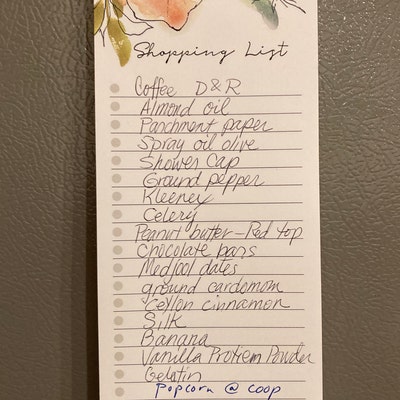 Shopping List
Coffee D&R
Almond oil
Parchment paper
Spray oil olive
Shower Cap
Ground pepper
Kleenex
Celery
Peanut butter - Red top
Chocolate bars
Medjool dates
ground cardomom
Ceylon cinnamon
Silk
Banana
Vanilla Protiem Powder
Gelatin
Popcorn @ coop